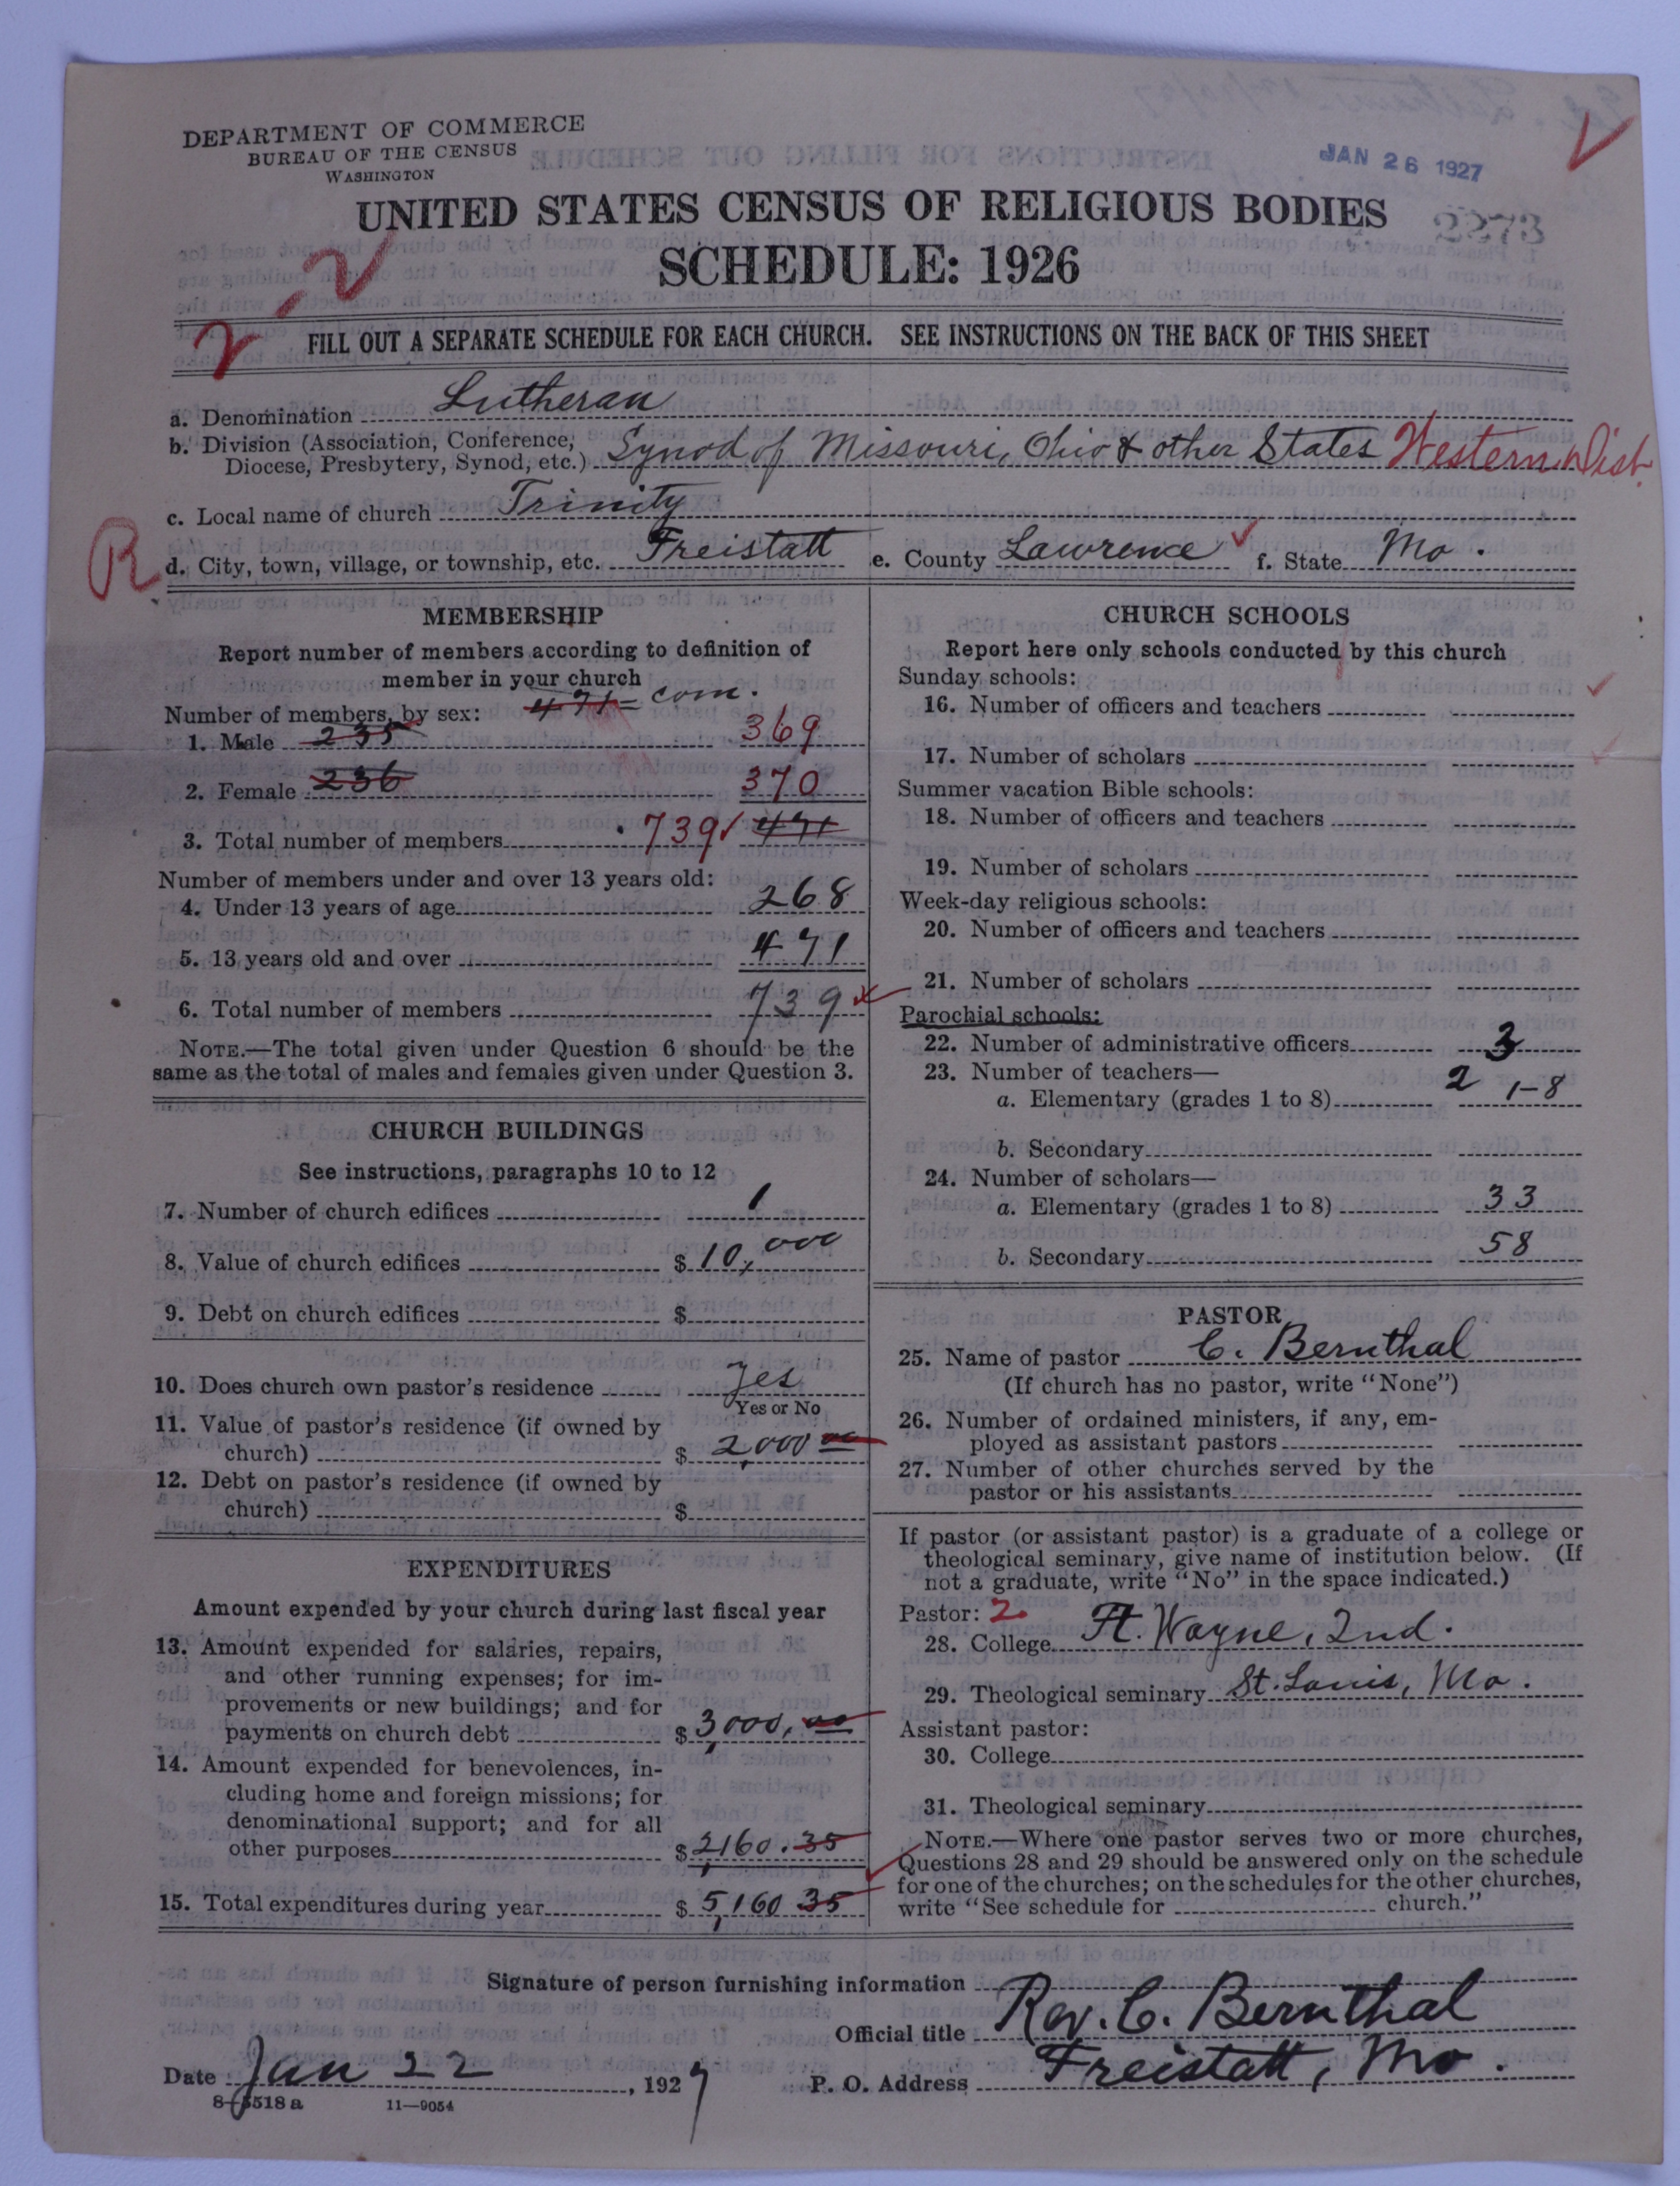 DEPARTMENT OF COMMERCE
BUREAU OF THE CENSUS
WASHINGTON
JAN 26 1927
UNITED STATES CENSUS OF RELIGIOUS BODIES
2273
SCHEDULE: 1926
FILL OUT A SEPARATE SCHEDULE FOR EACH CHURCH. SEE INSTRUCTIONS ON THE BACK OF THIS SHEET
a. Denomination Lutheran
b. Division (Association, Conference,
Diocese, Presbytery, Synod, etc.) Synod of Missouri, Ohio & other States Western Dist.
c. Local name of church Trinity
R
d. City, town, village, or township, etc. Freistatt e. County Lawrence f. State Mo.
MEMBERSHIP
Report number of members according to definition of
member in your church
Number of members, by sex: 471 = com.
1. Male 235 369
2. Female 236 370
3. Total number of members 739 471
Number of members under and over 13 years old:
4. Under 13 years of age 268
5. 13 years old and over 471
6. Total number of members 739
NOTE.—The total given under Question 6 should be the
same as the total of males and females given under Question 3.
CHURCH BUILDINGS
See instructions, paragraphs 10 to 12
7. Number of church edifices 1
8. Value of church edifices $ 10,000
9. Debt on church edifices $
10. Does church own pastor's residence Yes
Yes or No
11. Value of pastor's residence (if owned by
church) $ 2,000 00
12. Debt on pastor's residence (if owned by
church) $
EXPENDITURES
Amount expended by your church during last fiscal year
13. Amount expended for salaries, repairs,
and other running expenses; for im-
provements or new buildings; and for
payments on church debt $ 3,000.00
14. Amount expended for benevolences, in-
cluding home and foreign missions; for
denominational support; and for all
other purposes $ 2,160.35
15. Total expenditures during year $ 5,160 35
CHURCH SCHOOLS
Report here only schools conducted by this church
Sunday schools:
16. Number of officers and teachers
17. Number of scholars
Summer vacation Bible schools:
18. Number of officers and teachers
19. Number of scholars
Week-day religious schools:
20. Number of officers and teachers
21. Number of scholars
Parochial schools:
22. Number of administrative officers 3
23. Number of teachers—
a. Elementary (grades 1 to 8) 2 1-8
b. Secondary
24. Number of scholars—
a. Elementary (grades 1 to 8) 33
b. Secondary 58
PASTOR
25. Name of pastor C. Bernthal
(If church has no pastor, write "None")
26. Number of ordained ministers, if any, em-
ployed as assistant pastors
27. Number of other churches served by the
pastor or his assistants
If pastor (or assistant pastor) is a graduate of a college or
theological seminary, give name of institution below. (If
not a graduate, write "No" in the space indicated.)
Pastor: 2
28. College Ft. Wayne, Ind.
29. Theological seminary St. Louis, Mo.
Assistant pastor:
30. College
31. Theological seminary
NOTE.—Where one pastor serves two or more churches,
Questions 28 and 29 should be answered only on the schedule
for one of the churches; on the schedules for the other churches,
write "See schedule for church."
Signature of person furnishing information
Official title Rev. C. Bernthal
Date Jan 22, 1927 P. O. Address Freistatt, Mo.
8-5518 a 11-9054